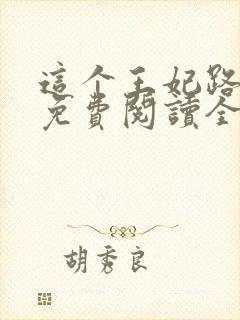 這个王妃路
免費閱讀全
胡秀良